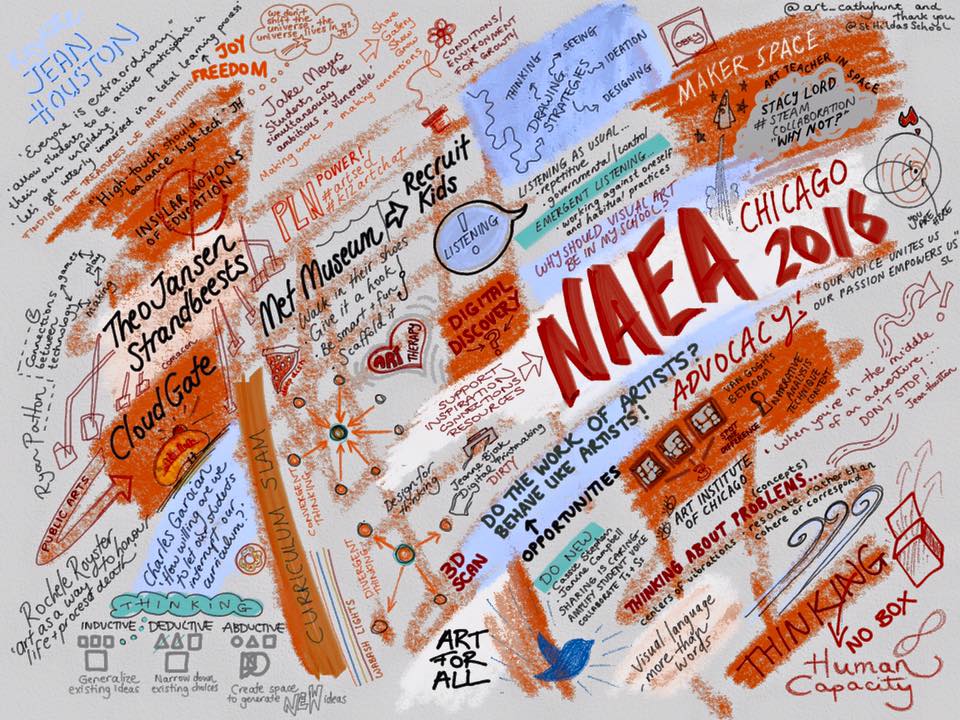 @art_cathyhunt and
thank you
@StHildasSchool
Keynote
JEAN
HOUSTON
'Everyone is extraordinary'
'allow students to be active participants in
their own unfolding'
'let's get utterly immersed in a total learning process'
FINDING THE TREASURES WE HAVE WITHIN
"High-touch should
balance high-tech" JH
JOY
FREEDOM
we don't
shift the
universe, the
universe lives in
us.
Jake Meyers
'Students can be
simultaneously
creative + vulnerable'
Making work → making connections
Share
Gallery
Show
CONDITIONS/
ENVIRONMENT
FOR GROWTH
THINKING
DRAWING
STRATEGIES
SEEING
IDEATION
DESIGNING
OBEY
MAKER SPACE
ART TEACHER IN SPACE
STACY LORD
#STEAM
COLLABORATION
"WHY NOT?"
YOU
ARE
HERE
INSULAR NOTION
OF EDUCATION
PLN POWER!
#artsed
#k12artchat
Recruit
Kids
Met Museum
Walk in their shoes
Give it a hook
Be smart + fun!
Scaffold it
LISTENING!
LISTENING AS USUAL...
repetitive
governmental/control
EMERGENT LISTENING...
working against oneself
and habitual practices
WHY SHOULD VISUAL ART
BE IN MY SCHOOL?
NAEA
CHICAGO
2016
"OUR VOICE UNITES US
OUR PASSION EMPOWERS US"
SL
Theo Jansen
Strandbeests
Ryan Patton
connections
between
technology
games
play
making
Cloud Gate
PUBLIC ARTS
ART THERAPY
DIGITAL
DISCOVERY
?
SUPPORT
INSPIRATION
CONNECTIONS
RESOURCES
ADVOCACY!
VAN GOGH'S
BEDROOM
NARRATIVE
ANALYSIS
TECHNIQUE
CONTEXT
SPOT
THE
DIFFERENCE
ART INSTITUTE
OF CHICAGO
'when you're in the middle
of an adventure...
DON'T STOP!'
Jean Houston
Design for
thinking
Jeanne Bjork
Digital Printmaking
DIRTY
DO THE WORK OF ARTISTS?
BEHAVE LIKE ARTISTS!
OPPORTUNITIES
THINKING ABOUT PROBLEMS...
(concepts)
centers of vibrations - resonate rather than
cohere or correspond
Rochele Royster
'art as a way to honour
life + process death'
Charles Garoian
'How willing are we
to let our students
interrupt our
curriculum?'
CURRICULUM SLAM
CONVERGENT
THINKING
DIVERGENT
THINKING
WABASH LIGHTS
3D
SCAN
DO NOW
Cassie Stephens
Joanna Campbell
SHARING IS CARING
AMPLIFY STUDENT VOICE
COLLABORATE Ts Ss
THINKING
INDUCTIVE
Generalize
existing ideas
DEDUCTIVE
Narrow down
existing choices
ABDUCTIVE
Create space
to generate NEW ideas
ART
FOR
ALL
Visual language
'more than
words'
THINKING
NO BOX
Human
Capacity